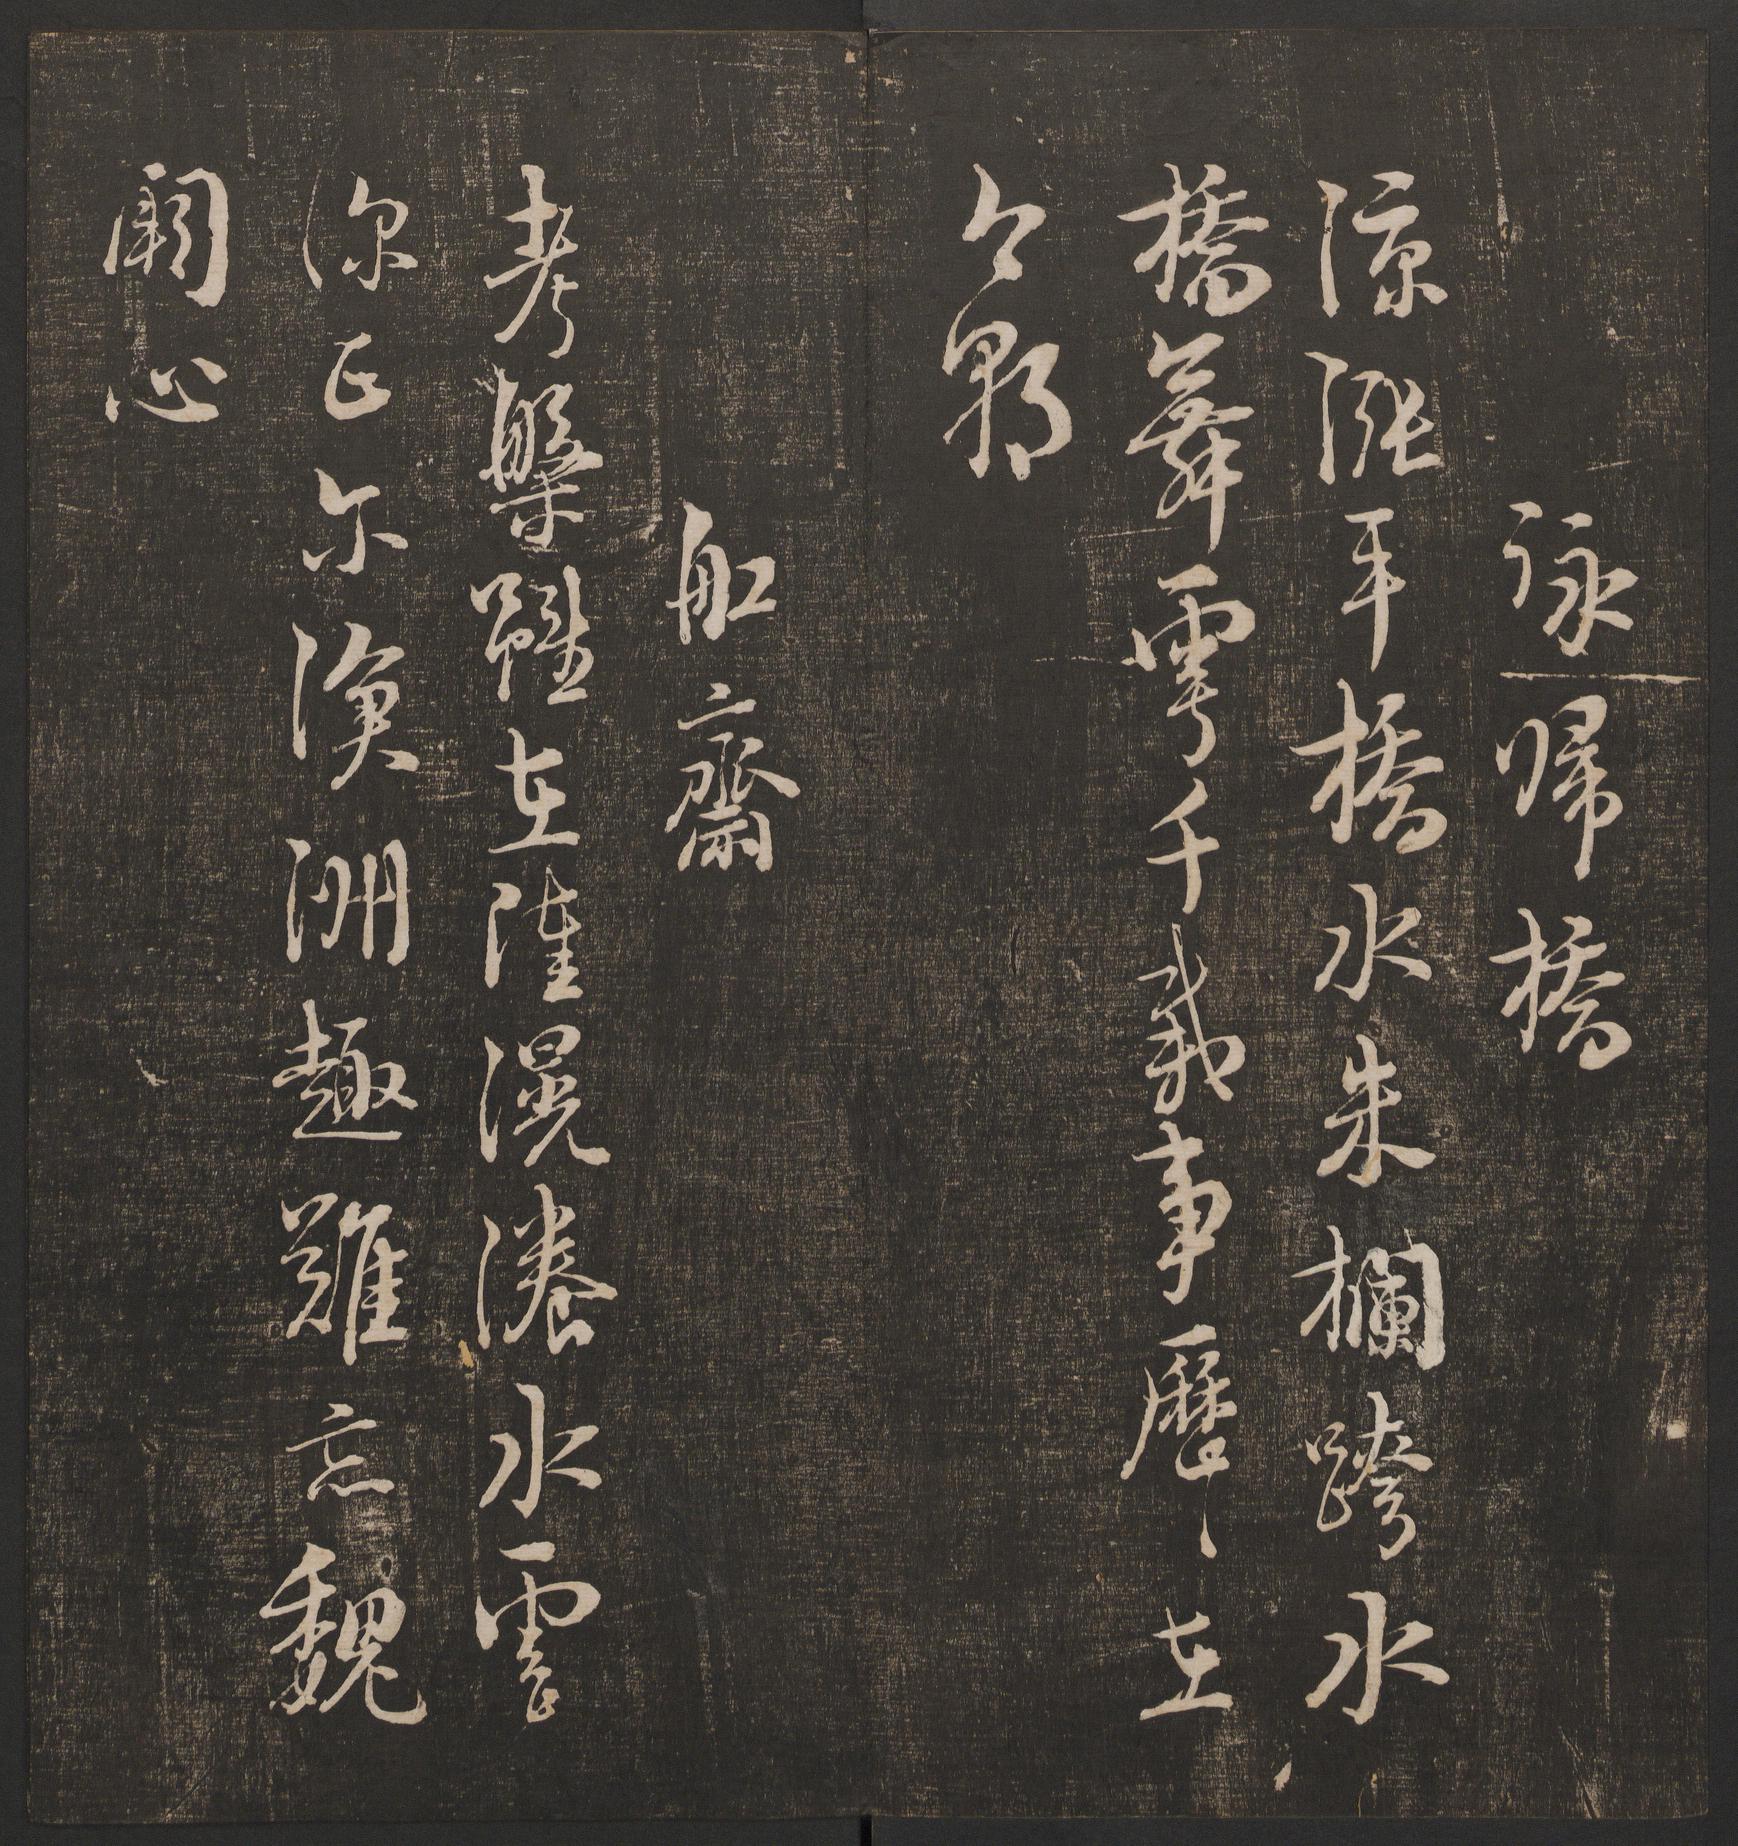 詠歸橋
渌漲平橋水朱欄跨水
橋舞雩千載事歷〻在
今朝
舡齋
考槃雖在陸滉瀁水雲
深正尔滄洲趣難忘魏
闕心